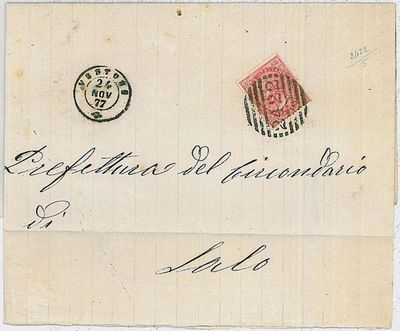 2422
5
VESTONE
24
NOV
77
Prefettura del Circondario
di
Salo